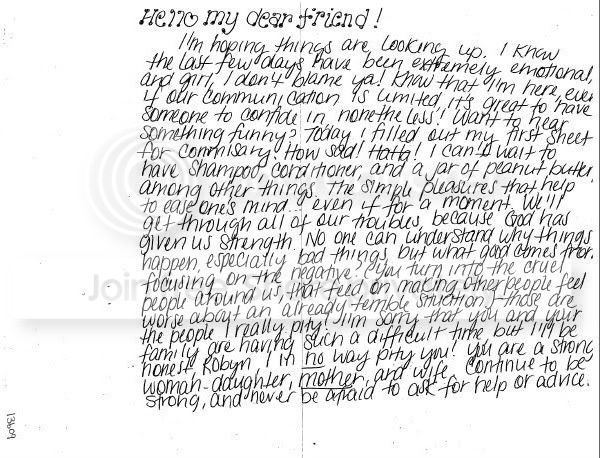 Hello my dear friend!
I'm hoping things are looking up. I know
the last few days have been extremely emotional,
and girl, I don't blame ya! Know that I'm here, even
if our communication is limited, it's great to have
someone to confide in, nonetheless! Want to hear
something funny? Today I filled out my first sheet
for commisary. How sad! Haha! I can't wait to
have shampoo, conditioner, and a jar of peanut butter,
among other things. The simple pleasures that help
to ease one's mind... even if for a moment. We'll
get through all of our troubles, because God has
given us strength. No one can understand why things
happen, especially bad things, but what good comes from
focusing on the negative? You turn into the cruel
people around us, that feed on making other people feel
worse about an already terrible situation. Those are
the people I really pity! I'm sorry that you and your
family are having such a difficult time but I'll be
honest Robyn, I in no way pity you! You are a strong
woman-daughter, mother, and wife. Continue to be
strong, and never be afraid to ask for help or advice.
13609